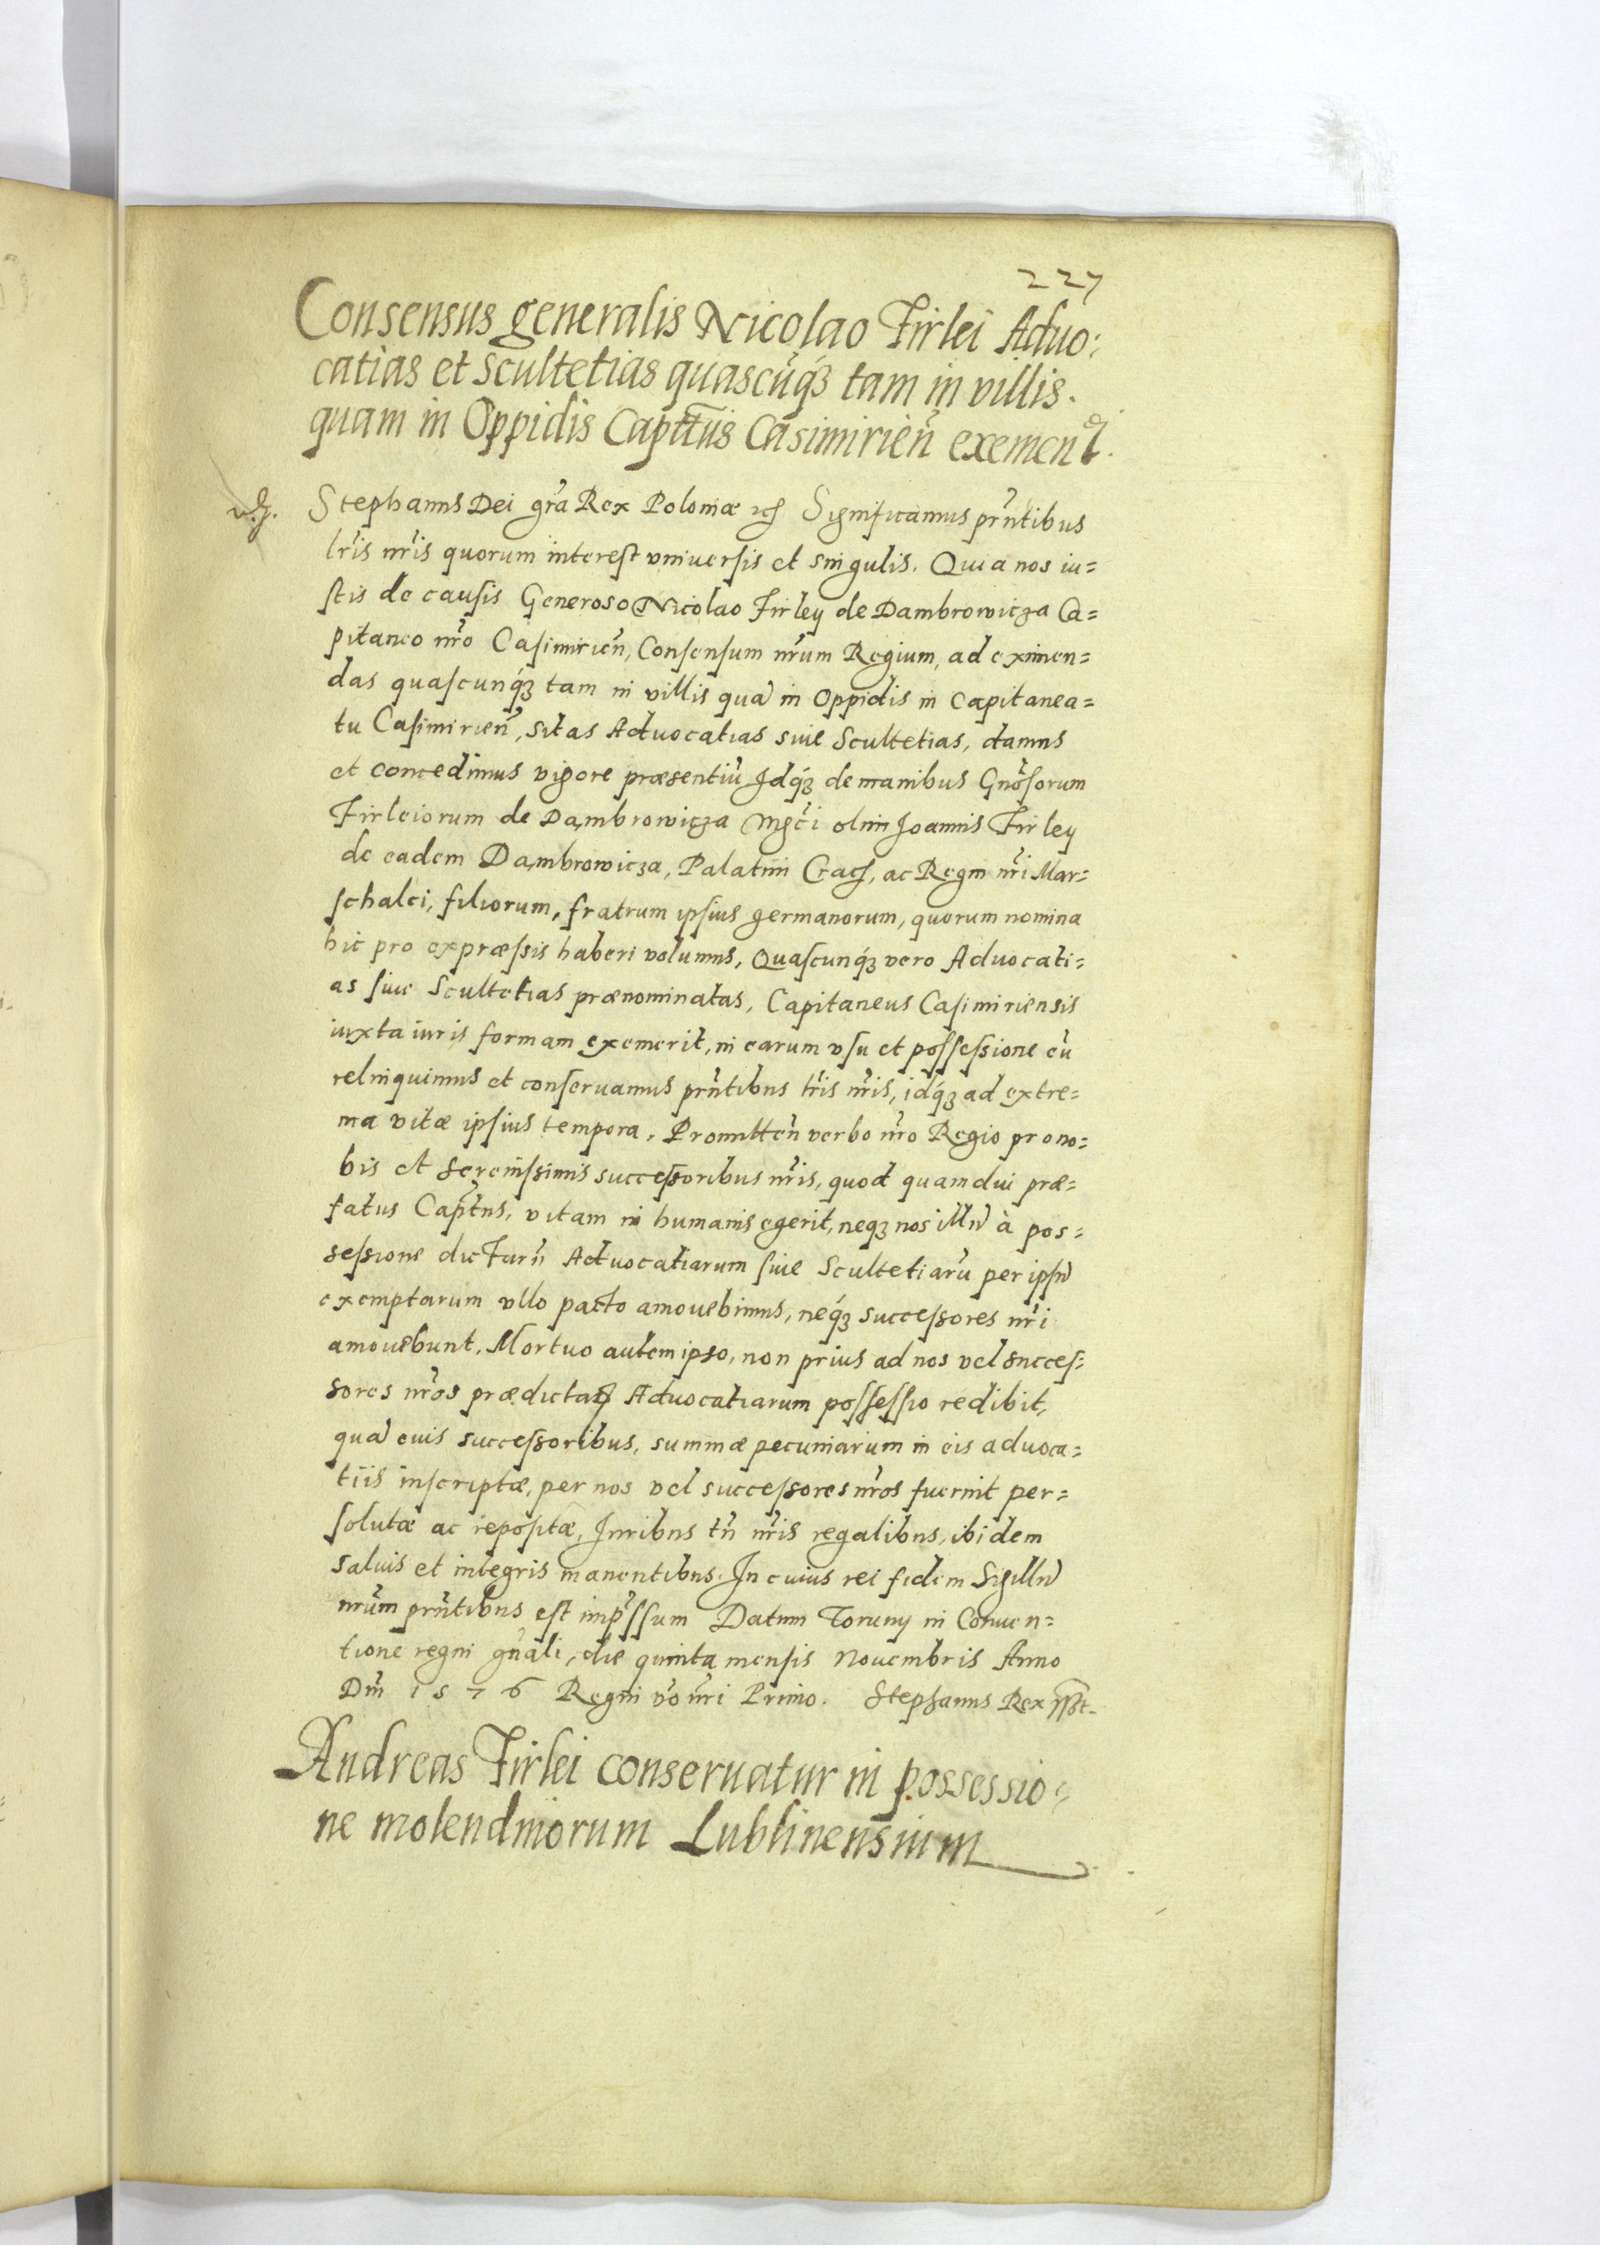 227
Consensus generalis Nicolao Firlei Aduo:
catias et Scultetias quascũq́ꝫ tam in villis.
quam in Oppidis Capt̃tus Casimirien̄ exemen̄d.
Stephanus Dei gr̃a Rex Poloniæ ꝛcꝭ Significamus pr̃ntibus
lr̃is nr̃is quorum interest vniuersis et singulis. Quia nos iu=
stis de causis Generoso Nicolao Firley de Dambrowicza Ca=
pitaneo nr̃o Casimirien̄, Consensum nr̃um Regium, ad eximen=
das quascunq́ꝫ tam in villis quã in Oppidis in Capitanea=
tu Casimirien̄, sitas Aduocatias siue Scultetias, damus
et concedimus vigore præsentiũ Idq́ꝫ de manibus Gnõsorum
Firleiorum de Dambrowicza Mg̃ci olim Joannis Firley
de eadem Dambrowicza, Palatini Cracꝭ, ac Regni nr̃i Mar=
schalci, filiorum, fratrum ipsius germanorum, quorum nomina
hic pro expræssis haberi volumus, Quascunq́ꝫ vero Aduocati=
as siue Scultetias prænominatas, Capitaneus Casimiriensis
iuxta iuris formam exemerit, in earum vsu et possessione eũ
relinquimus et conseruamus pr̃ntibus lr̃is nr̃is, idq́ꝫ ad extre=
ma vitæ ipsius tempora, Promitten̄ verbo nr̃o Regio pro no=
bis et Serenissimis successoribus nr̃is, quod quamdiu præ=
fatus Capt̃nus, vitam in humanis egerit, neqꝫ nos illũ à pos=
sessione dictarũ Aduocatiarum siue Scultetiarũ per ipsũ
exemptarum vllo pacto amouebimus, neq́ꝫ successores nr̃i
amouebunt, Mortuo autem ipso, non prius ad nos vel succes=
sores nr̃os prædictaꝝ Aduocatiarum possessio redibit,
quã euis successoribus, summæ pecuniarium in eis aduoca=
tiis inscriptæ, per nos vel successores nr̃os fuerint per=
solutæ ac repositæ, Iuribus tñ nr̃is regalibus, ibidem
saluis et integris manentibus. In cuius rei fidem Sigillũ
nr̃um pr̃ntibus est imp̃ssum Datum Toruny in Conuen=
tione regni gñali, die quinta mensis Nouembris Anno
Dñi 1576 Regni v̊o nr̃i Primo. Stephanus Rex sst.
Andreas Firlei conseruatur in possessio=
ne molendinorum Lublinensium